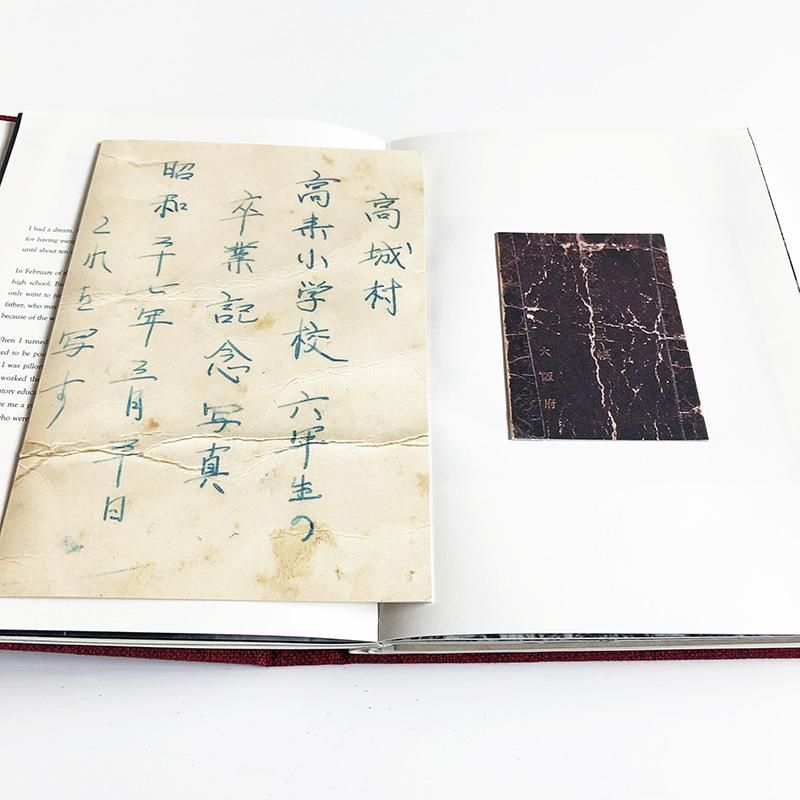 高城村
高来小学校 六年生の
卒業記念写真
昭和二十七年 三月 二十日
これを写す
I had a dream,
for having
until about
In February of
high school.
only went to
father, who
because of the
When I turned
to be
I was
worked the
me a
who were
大阪府